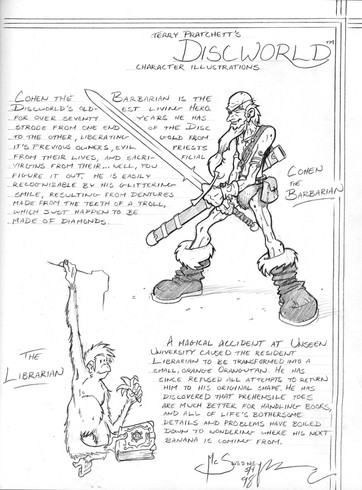 TERRY PRATCHETT'S
DISCWORLD™
CHARACTER ILLUSTRATIONS
COHEN THE BARBARIAN IS THE
DISCWORLD'S OLDEST LIVING HERO.
FOR OVER SEVENTY YEARS HE HAS
STRODE FROM ONE END OF THE DISC
TO THE OTHER, LIBERATING GOLD FROM
IT'S PREVIOUS OWNERS, EVIL PRIESTS
FROM THEIR LIVES, AND SACRIFICIAL
VIRGINS FROM THEIR... WELL, YOU
FIGURE IT OUT. HE IS EASILY
RECOGNIZABLE BY HIS GLITTERING
SMILE, RESULTING FROM DENTURES
MADE FROM THE TEETH OF A TROLL,
WHICH JUST HAPPEN TO BE
MADE OF DIAMONDS.
COHEN
THE
BARBARIAN
THE
LIBRARIAN
A MAGICAL ACCIDENT AT UNSEEN
UNIVERSITY CAUSED THE RESIDENT
LIBRARIAN TO BE TRANSFORMED INTO A
SMALL, ORANGE ORANGUTAN. HE HAS
SINCE REFUSED ALL ATTEMPTS TO RETURN
HIM TO HIS ORIGINAL SHAPE. HE HAS
DISCOVERED THAT PREHENSILE TOES
ARE MUCH BETTER FOR HANDLING BOOKS,
AND ALL OF LIFE'S BOTHERSOME
DETAILS AND PROBLEMS HAVE BOILED
DOWN TO WONDERING WHERE HIS NEXT
BANANA IS COMING FROM.